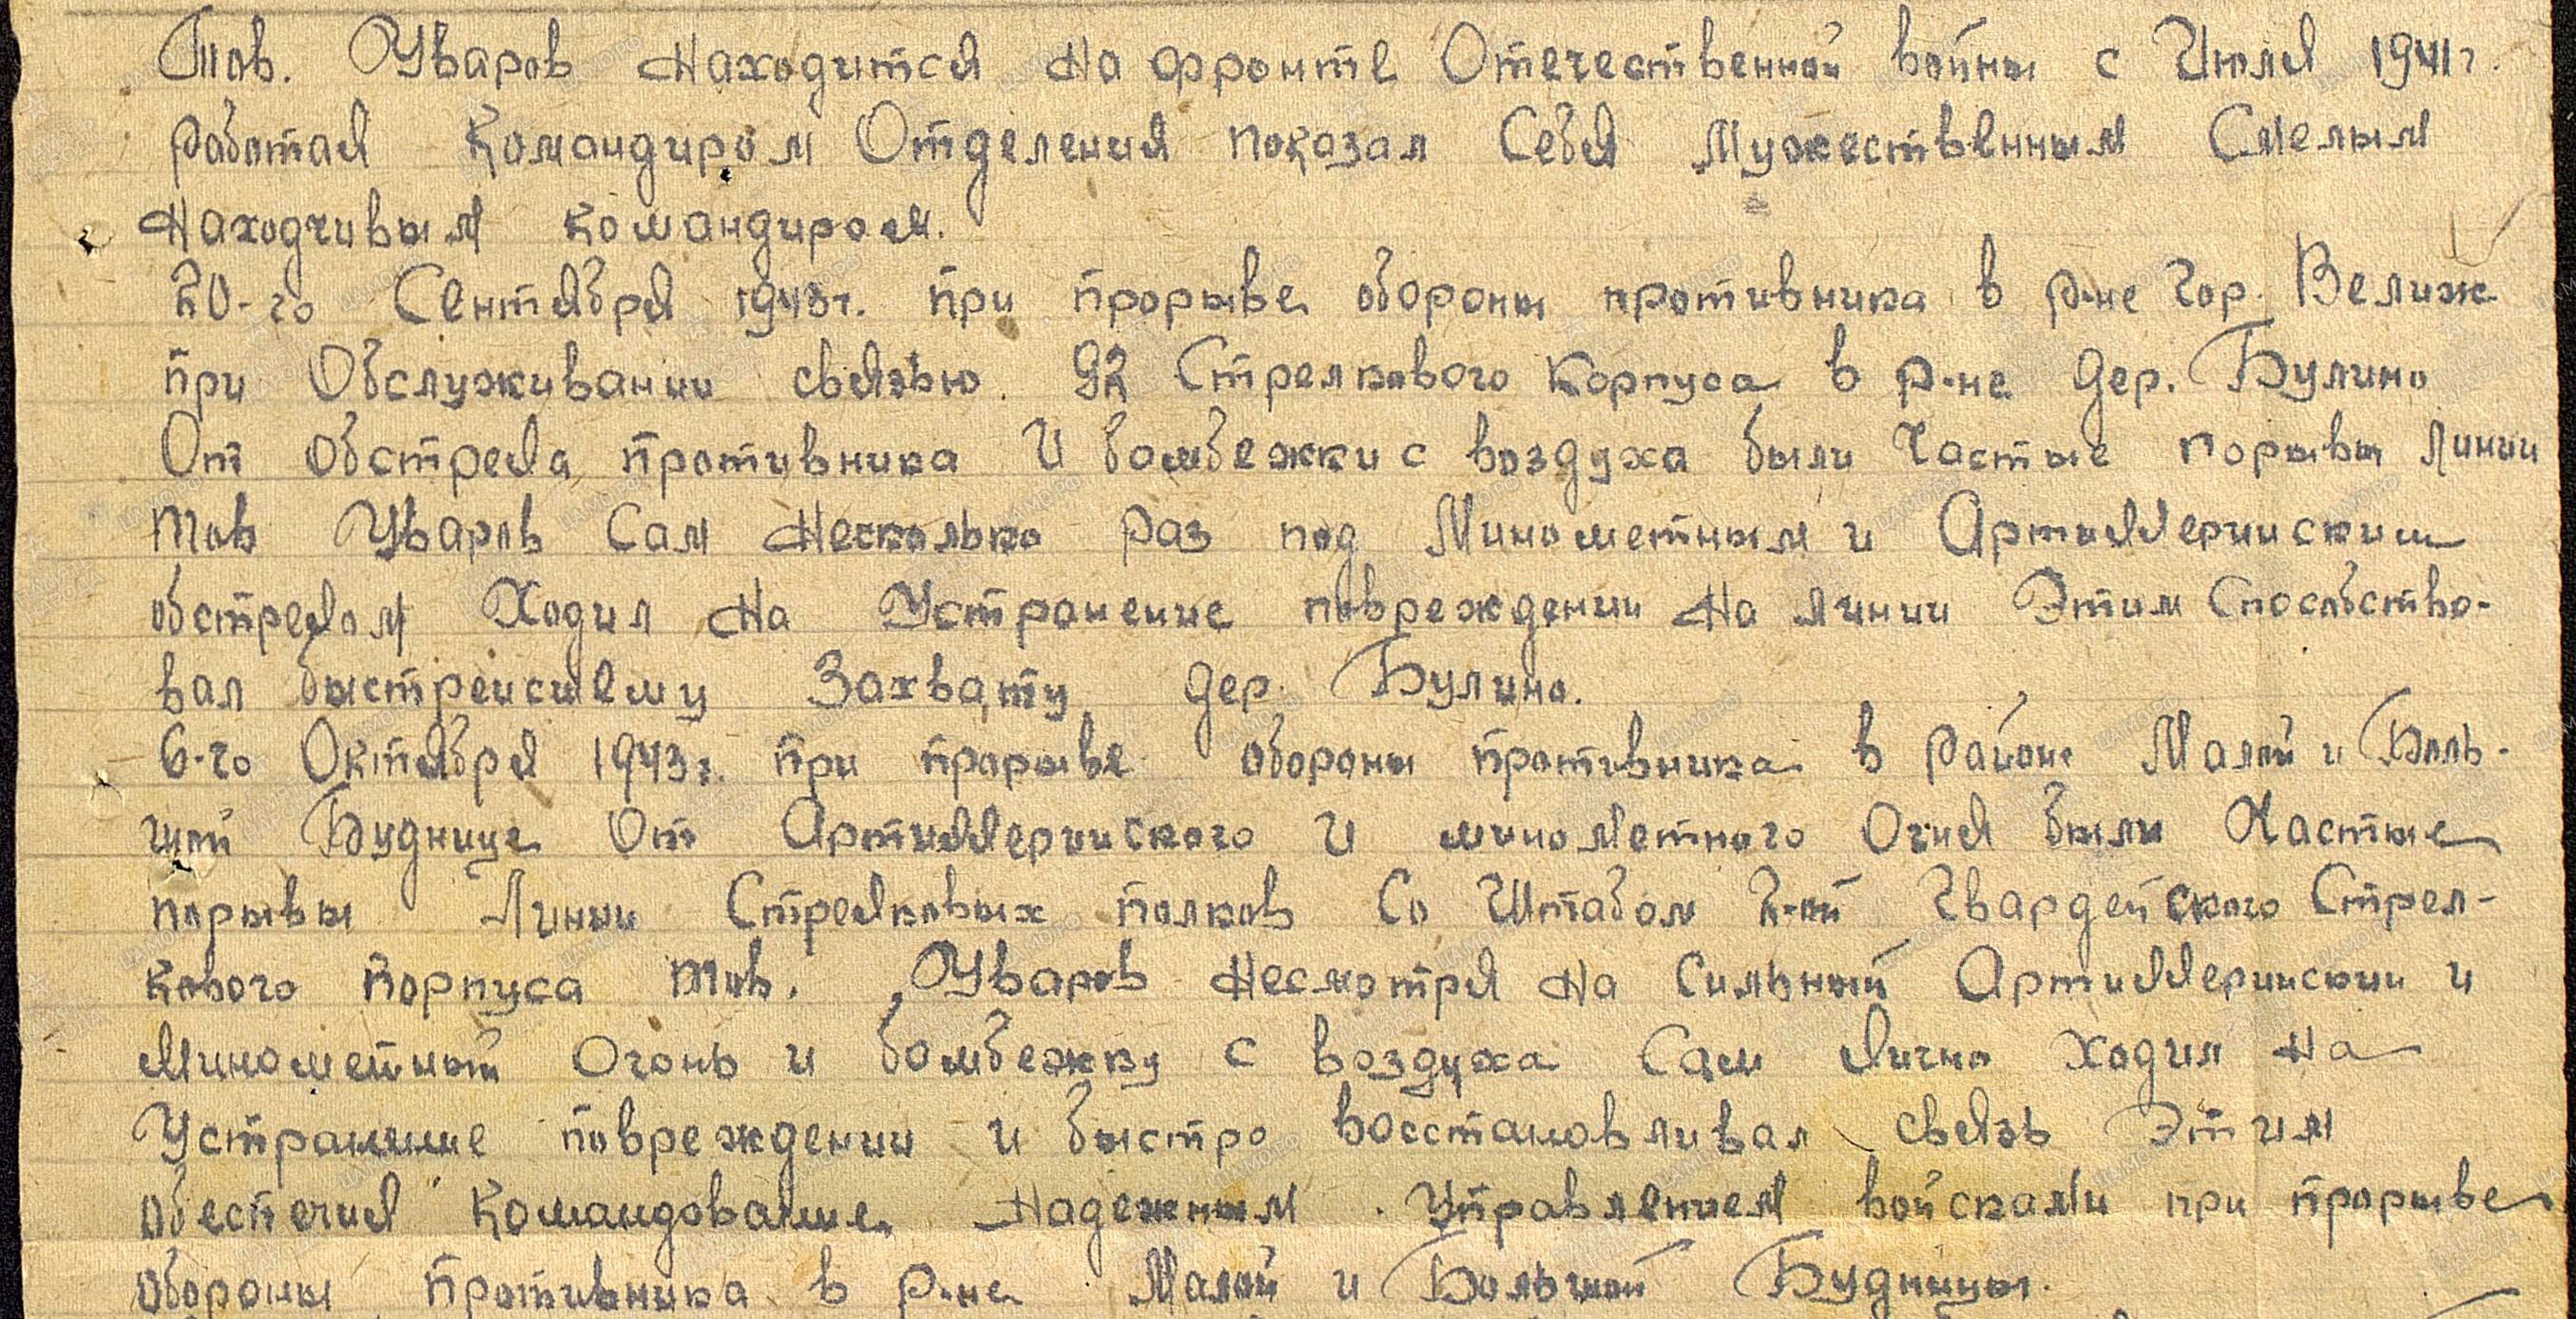 Тов. Уваров находится на фронте Отечественной войны с Июля 1941 г.
работая Командиром Отделения показал Себя Мужественным Смелым
находчивым командиром.
20-го Сентября 1943 г. при прорыве обороны противника в р-не гор. Велиж
при Обслуживании связью. 92 Стрелкового Корпуса в р-не дер. Булино
От обстрела противника И бомбежки с воздуха были Частые порывы линии
тов Уваров Сам несколько раз под Минометным и Артиллериским
обстрелом Ходил на Устронение повреждении на линии Этим Способство-
вал быстреисшему Захвату дер. Булино.
6-го Октября 1943 г. при прорыве обороны противника в районе Малой и Боль-
шой Буднице От Артиллерииского И минометного Огня были Частые
порывы Линии Стрелковых полков Со Штабом 2-ой Гвардейского Стрел-
кового Корпуса тов. Уваров несмотря на Сильный Артиллериискии и
Минометный Огонь и бомбежку с воздуха Сам лично Ходил на
Устранение повреждении и быстро восстановливал связь Этим
обеспечил Командование надежным Управлением войсками при прорыве
обороны противника в р-не Малой и Большой Будницы.